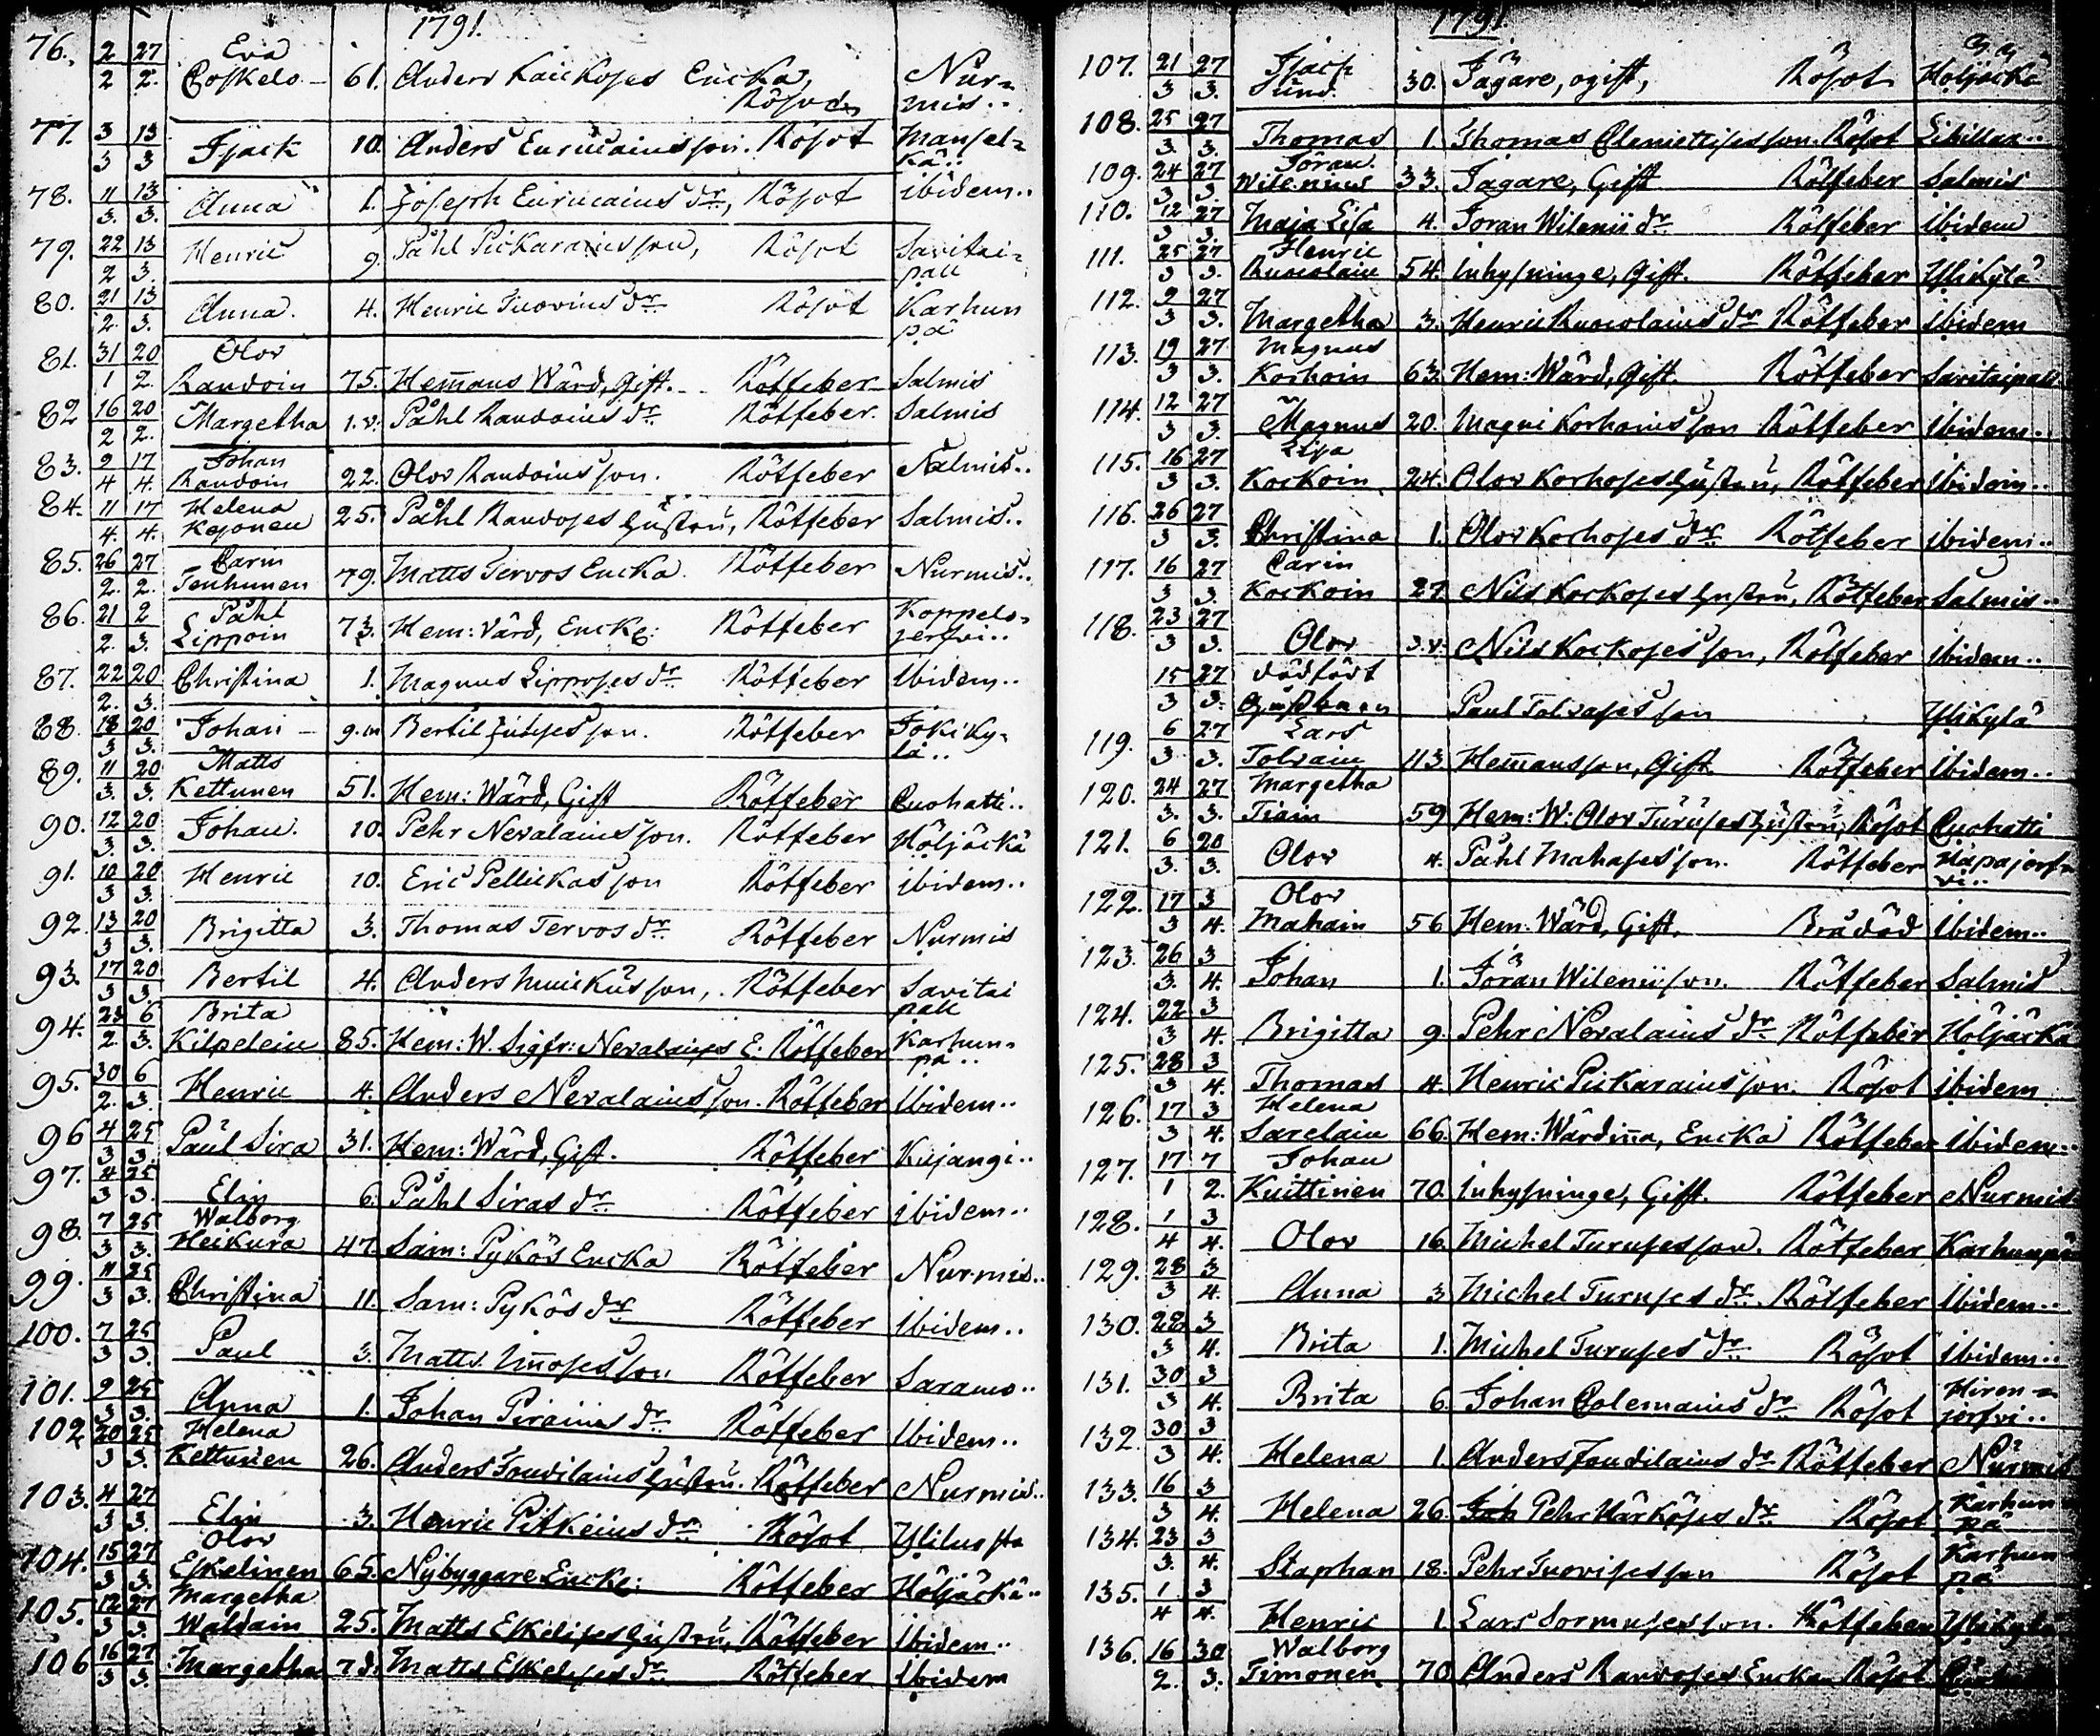 1791.
76. 2/2 27/2. Eva Coskelo 61. Anders Encka, Rösoden Nurmis..
77. 3/3 13/3 Isack 10. Anders son. Rösot Mansel=kä..
78. 11/3. 13/3. Anna 1. Joseph dr, Rösot ibidem..
79. 22/2 13/3. Henric 9. Påhl Pickarainus son, Rösot Savitai=pale
80. 21/2. 13/3. Anna. 4. Henric Tuovinus dr Rösot Karhunpä
81. 31/1 20/2. Olov Raudoin 75. Hemans Wärd, Gift. Rötfeber Salmis
82 16/2 20/2. Margetha 1.v. Påhl Raudoinus dr Rötfeber. Salmis
83. 9/4 17/4. Johan Raudoin 22. Olov Raudoinus son. Rötfeber Salmis..
84. 11/4. 17/4. Helena Kejonen 25. Påhl Raudoses hustru, Rötfeber Salmis..
85. 26/2. 27/2. Carin Tenhunen 79. Matts Tervos Encka. Rötfeber Nurmis..
86. 21/2. 2/3. Påhl Lippoin 73. Hem: Värd, Encke: Rötfeber Koppelo=jerfvi..
87. 22/2. 20/3. Christina 1. Magnus Lipposes dr Rötfeber Ibidem..
88. 18/3 20/3. Johan 9.m Bertil son. Rötfeber Jokiky=lä..
89. 11/3. 20/3. Matts Kettunen 51. Hem: Wärd, Gift Rötfeber Cuohatti..
90. 12/3. 20/3. Johan. 10. Pehr Nevalainus son. Rötfeber Höljäckä
91. 10/3 20/3. Henric 10. Eric Pellickas son Rötfeber ibidem..
92. 13/3 20/3. Brigitta 3. Thomas Tervos dr Rötfeber Nurmis
93. 17/3 20/3. Bertil 4. Anders son, Rötfeber Savitaipale
94. 23/2. 6/3. Brita Kilpelein 85. Hem: W. Sigfr: Nevalaises E. Rötfeber Karhun=pä..
95. 30/2. 6/3. Henric 4. Anders Nevalainus son. Rötfeber Ibidem..
96 4/3 25/3. Paul Sira 31. Hem: Wärd, Gift. Rötfeber Kujangi..
97. 4/3 25/3. Elin 6. Påhl Siras dr Rötfeber ibidem..
98. 7/3 25/3. Walborg Heikura 47. Sam: Pykös Encka Rötfeber Nurmis..
99. 11/3 25/3. Christina 11. Sam: Pykös dr Rötfeber Ibidem..
100. 7/3 25/3. Paul 3. Matts son Rötfeber Saramo..
101. 9/3 25/3. Anna 1. Johan Pirainus dr Rötfeber Ibidem..
102 20/3 25/3. Helena Kettunen 26. Anders hustru. Rötfeber Nurmis..
103. 4/3 27/3. Elin 3. Henric Pitkeinus dr Rösot
104. 15/3 27/3. Olov Eskelinen 65. Nybyggare Encke: Rötfeber Höljäckä..
105. 12/3 27/3. Margetha Waldain 25. Matts Eskelises hustru, Rötfeber Ibidem..
106 16/3 27/3. Margetha 7d. Matts Eskelises dr Rötfeber Ibidem
1791.
107. 21/3 27/3. Isach Sund. 30. Jägare, ogift, Rösot Höljäckä
108. 25/3 27/3. Thomas 1. Thomas son. Rösot
109. 24/3 27/3. Jöran Wilenius 33. Jägare, Gift Rötfeber Salmis
110. 12/3 27/3. Maja Lisa 4. Jöran Wilenii dr Rötfeber Ibidem
111. 25/3 27/3. Henric 54. Inhysninge, Gift. Rötfeber Ylikylä
112. 9/3 27/3. Margetha 3. Henric dr Rötfeber Ibidem
113. 19/3 27/3. Magnus Korhoin 63. Hem: Wärd, Gift. Rötfeber Savitaipale
114. 12/3 27/3. Magnus 20. Magni Korhoinus son Rötfeber Ibidem..
115. 16/3 27/3. Lisa Korkoin 24. Olov Korhoses hustru, Rötfeber Ibidem..
116. 26/3 27/3. Christina 1. Olov Korhoses dr Rötfeber ibidem..
117. 16/3 27/3. Carin Korkoin 27. Nils Korkoses hustru, Rötfeber Salmis..
118. 23/3 27/3. Olov 3.v. Nils Korkoses son, Rötfeber Ibidem..
15/3 27/3. dödfödt Paul Tolvases son Ylikylä
119. 6/3. 27/3. Lars Tolvain 43. Hemans son, Gift. Rötfeber Ibidem..
120. 24/3. 27/3. Margetha Tiain 59 Hem: W: Olov hustru, Rösot Cuohatti
121. 6/3. 20/3. Olov 4. Påhl Mahases son. Rötfeber Hapajerfvi..
122. 17/3 3/4. Olov Mahain 56 Hem. Wärd, Gift. Brådöd Ibidem..
123. 26/3. 3/4. Johan 1. Jöran Wilenii son. Rötfeber Salmis
124. 22/3 3/4. Brigitta 9. Pehr Nevalainus dr Rötfeber Höljäckä
125. 28/3 3/4. Thomas 4. Henric Pickarainus son. Rösot ibidem
126. 17/3 3/4. Helena Sarelain 66. Hem: Wärdina, Encka Rötfeber Ibidem..
127. 17/1 7/2. Johan Kuittinen 70. Inhysninge, Gift. Rötfeber Nurmis
128. 1/4 3/4. Olov 16. Michel Turuses son. Rötfeber Karhunpä
129. 28/3 3/4. Anna 3 Michel Turuses dr. Rötfeber Ibidem..
130. 22/3 3/4. Brita 1. Michel Turuses dr Rösot ibidem..
131. 30/3 3/4. Brita 6. Johan Colemainus dr Rösot Hiren=jerfvi..
132. 30/3 3/4. Helena 1. Anders dr Rötfeber Nurmis
133. 16/3 3/4. Helena 26. Joh Pehr Härköses dr Rösot Karhunpä
134. 23/3. 3/4. Staphan 18. Pehr Tuovises son Rösot Karhunpä
135. 1/4 3/4. Henric 1. Lars Sormuses son. Rötfeber Ylikylä
136. 16/2. 30/3. Walborg Timonen 70. Anders Raudoses Encka Rösot